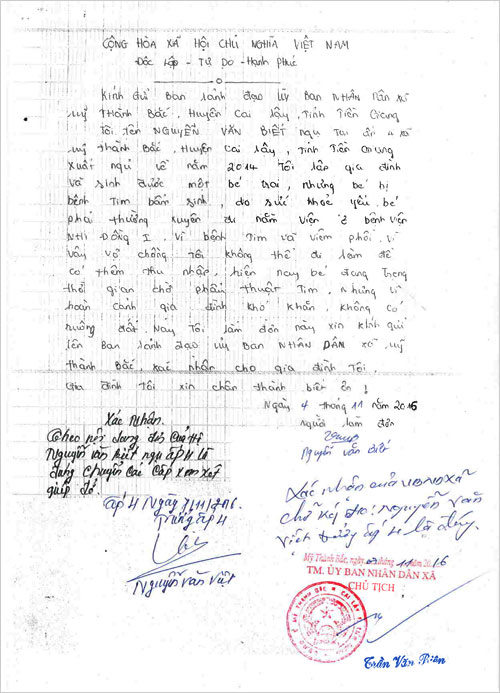 CỘNG HÒA XÃ HỘI CHỦ NGHĨA VIỆT NAM
Độc Lập - Tự Do - Hạnh Phúc
Kính gửi Ban Lãnh đạo Uỷ Ban NHÂN Dân xã
Mỹ Thành Bắc, Huyện Cai Lậy, Tỉnh Tiền Giang
Tôi Tên NGUYỄN VĂN BIẾT ngụ Tại ấp 4 xã
Mỹ Thành Bắc, Huyện Cai Lậy, Tỉnh Tiền Giang
Xuất ngũ về năm 2014 Tôi lập gia đình
Và sinh được một bé trai, nhưng bé bị
bệnh Tim bẩm sinh, do sức khoẻ yếu bé
phải thường xuyên đi nằm viện ở bệnh viện
NHI ĐỒNG I Vì bệnh Tim và viêm phổi. Vì
vậy vợ chồng tôi không thể đi làm để
có thêm thu nhập, hiện nay bé đang Trong
thời gian chờ phẫu thuật Tim, Nhưng vì
hoàn cảnh gia đình khó khăn, không có
ruộng đất. Nay Tôi làm đơn này xin kính gửi
lên Ban lãnh đạo uỷ Ban NHÂN DÂN xã Mỹ
thành Bắc, xác nhận cho gia đình Tôi.
Gia đình Tôi xin chân thành biết ơn!
Ngày 4 tháng 11 năm 2016
người làm đơn
Nguyễn văn biết
Xác Nhận.
Theo nội dung đơn của Hộ
Nguyễn văn biết ngụ ấp 4 là
đúng chuyển các cấp xem xét
giúp đỡ.
ấp 4 Ngày 7/11/2016
Trưởng ấp 4
Nguyễn Văn Việt
Xác nhận của UBND xã
Chữ ký do: Nguyễn Văn
Việt trưởng ấp 4 là đúng.
Mỹ Thành Bắc, ngày 07 tháng 11 năm 2016
TM. ỦY BAN NHÂN DÂN XÃ
CHỦ TỊCH
Trần Văn